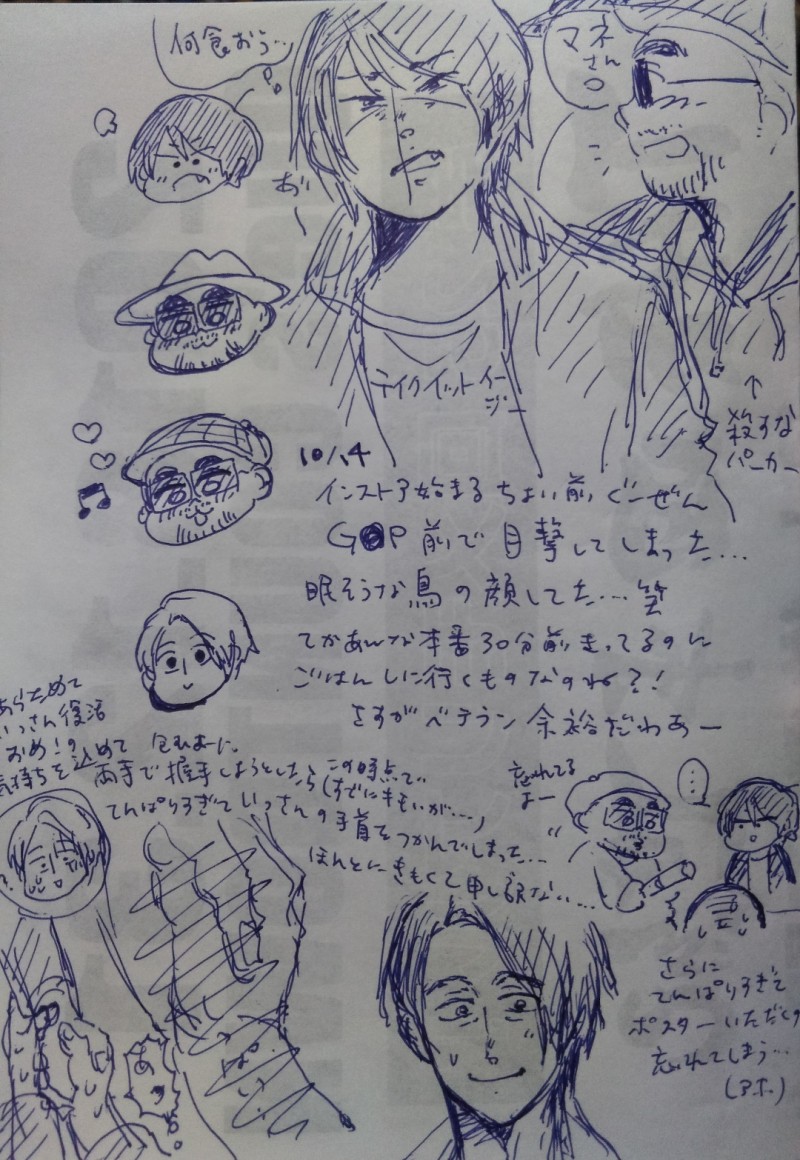 何食おう…
マネ
さん
お
テイクイットイー
ジー
↑
殺すな
パーカー
10/14
インストア始まるちょい前 ぐーぜん
GOP前で目撃してしまった…
眠そうな鳥の顔してた…笑
てかあんな本番30分前走ってるのに
ごはんしに行くものなのね?!
さすがベテラン 余裕だわあー
あらためて
いっさん復活
おめ!の
気持ちを込めて 包むように
両手で握手しようとしたら(この時点で
すでにキモいが…)
てんぱりすぎていっさんの手首をつかんでしまった…
ほんとにきもくて申し訳ない…
忘れてる
よー
…
さらに
てんぱりすぎて
ポスターいただくの
忘れてしまう…
(アホ)